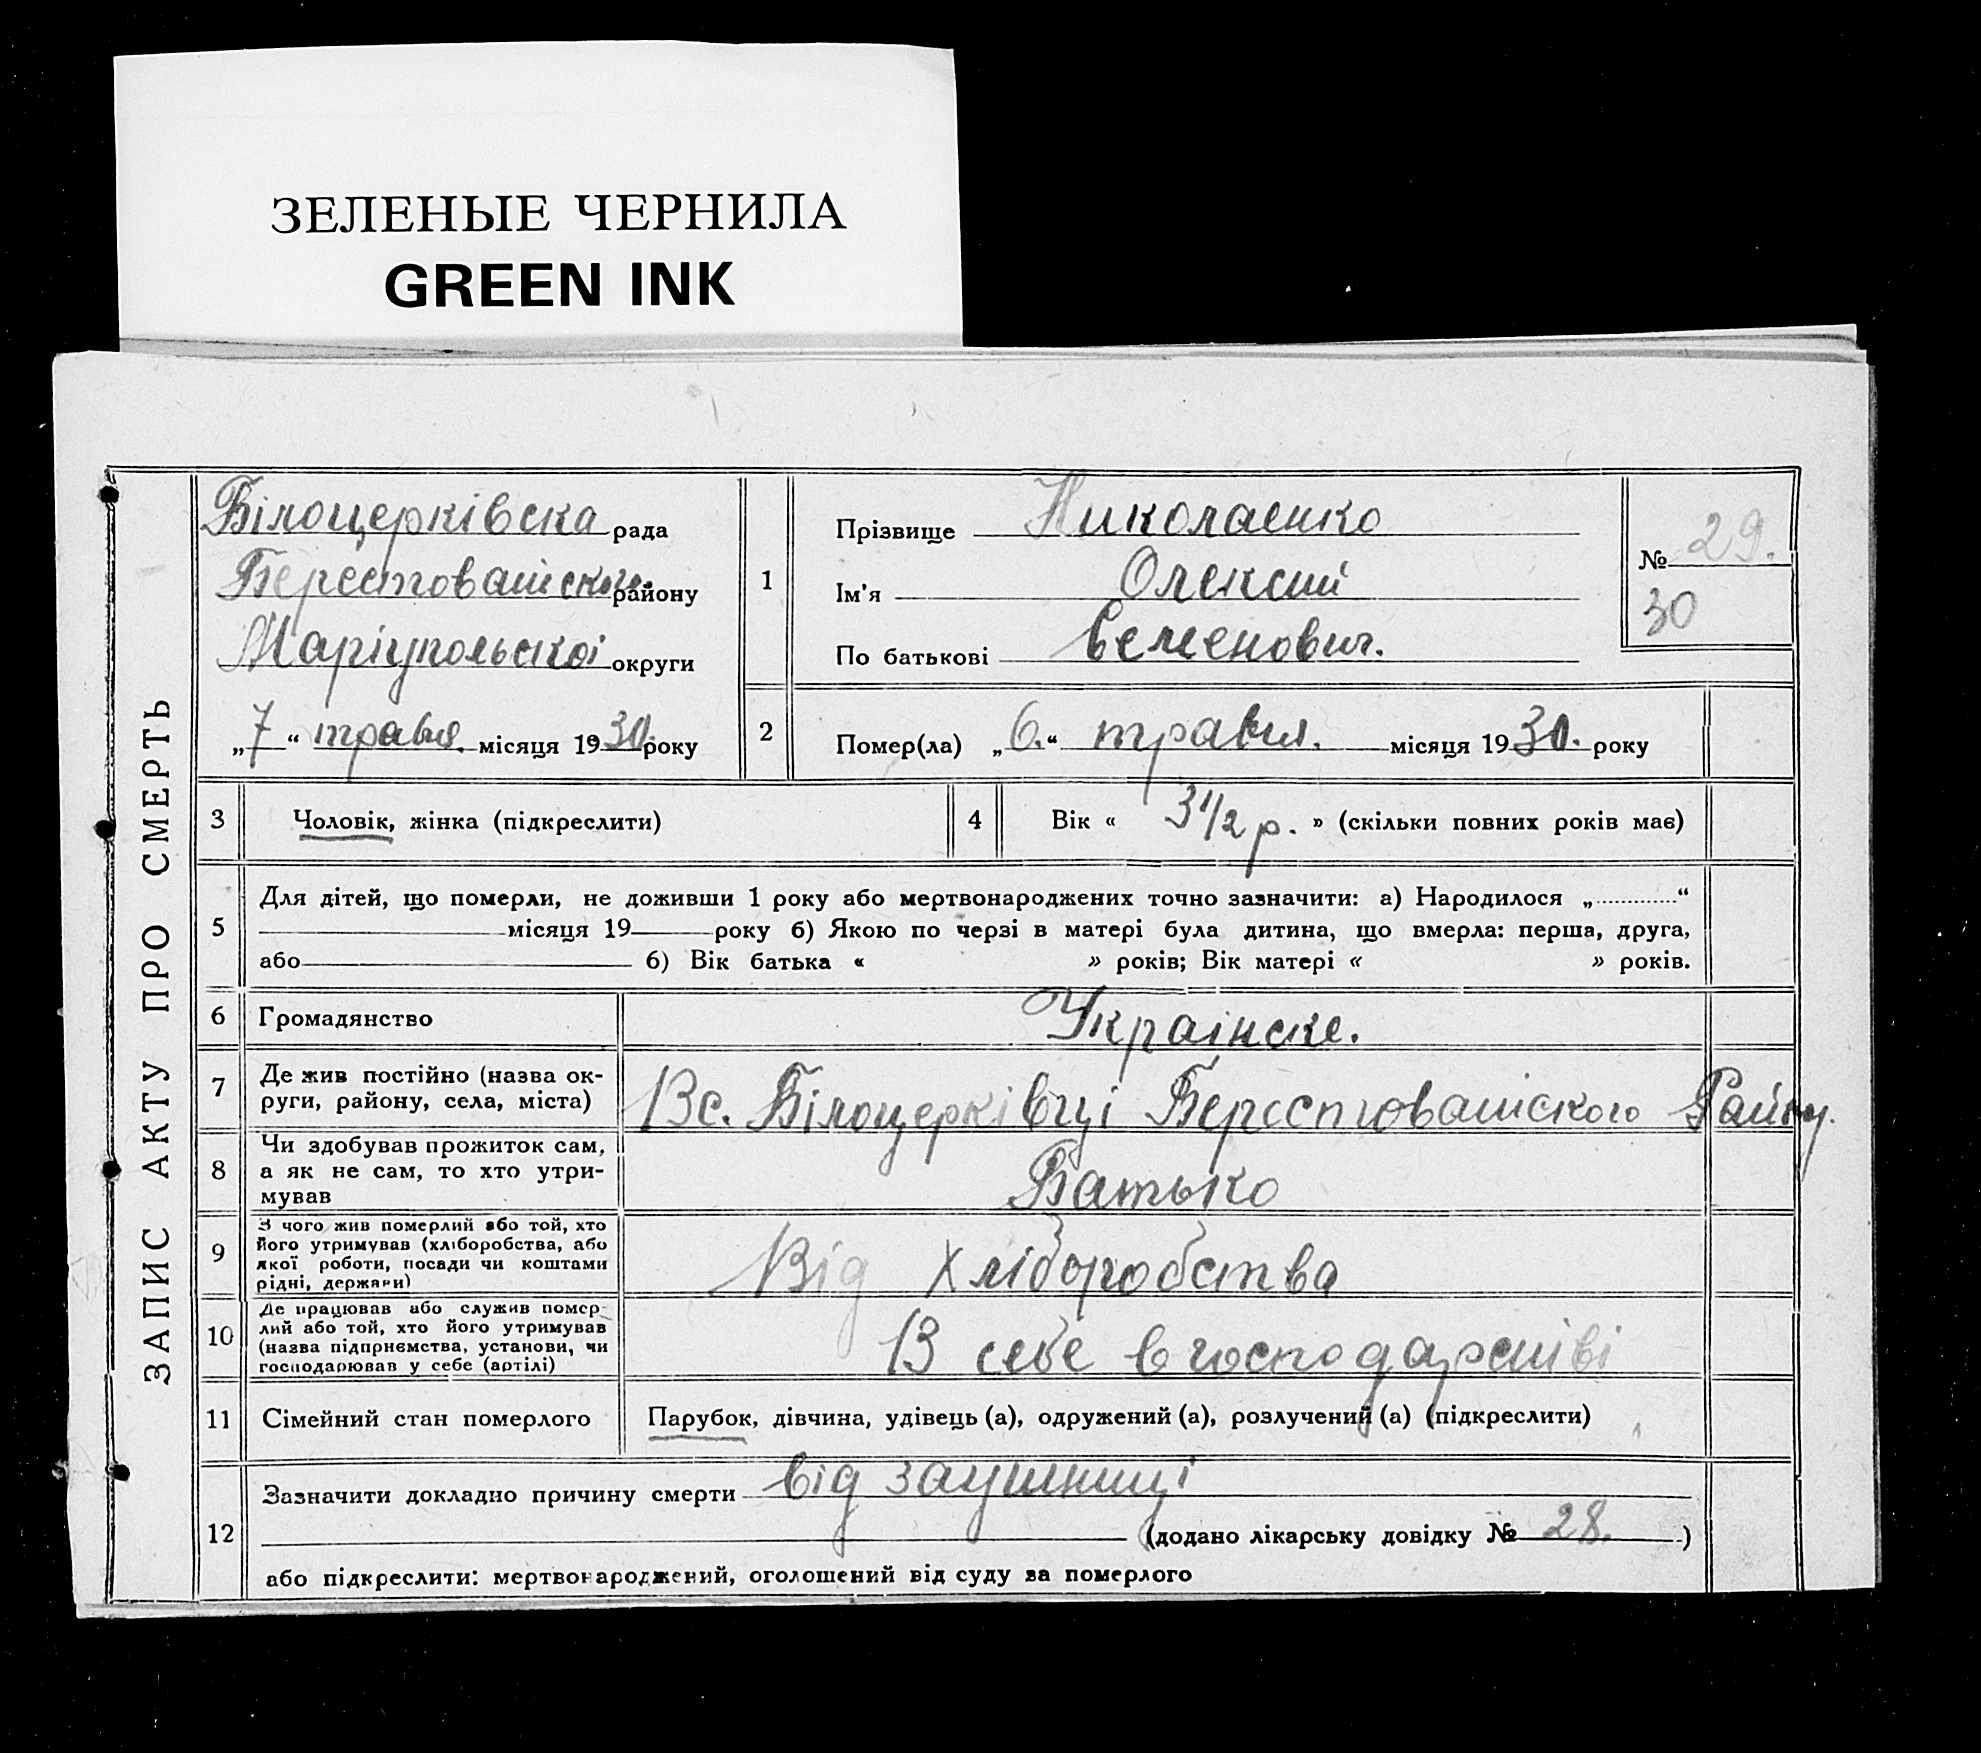 ЗЕЛЕНЫЕ ЧЕРНИЛА
GREEN INK
ЗАПИС АКТУ ПРО СМЕРТЬ
Білоцерківска рада
Берестоваиского району
Маріупольскоі округи
„7“ травня місяця 1930. року
1
Прізвище Николаенко
Ім'я Олексий
По батькові Семенович.
№ 29.
30
2
Помер(ла) „6.“ травня. місяця 1930. року
3 Чоловік, жінка (підкреслити)
4 Вік « 3 1/2 р. » (скільки повних років має)
5
Для дітей, що померли, не доживши 1 року або мертвонароджених точно зазначити: а) Народилося „............“
місяця 19 року б) Якою по черзі в матері була дитина, що вмерла: перша, друга,
або б) Вік батька « » років; Вік матері « » років.
6 Громадянство Украінске.
7 Де жив постійно (назва ок-
руги, району, села, міста)
В с. Білоцерківці Берестоваиского Району.
8 Чи здобував прожиток сам,
а як не сам, то хто утри-
мував
Батько
9 З чого жив померлий або той, хто
його утримував (хліборобства, або
якої роботи, посади чи коштами
рідні, держави)
Від хліборобства
10 Де працював або служив помер-
лий або той, хто його утримував
(назва підприємства, установи, чи
господарював у себе (артілі)
В себе в господарстві
11 Сімейний стан померлого Парубок, дівчина, удівець (а), одружений (а), розлучений (а) (підкреслити)
12
Зазначити докладно причину смерти від заушниці
(додано лікарську довідку № 28. )
або підкреслити: мертвонароджений, оголошений від суду за померлого